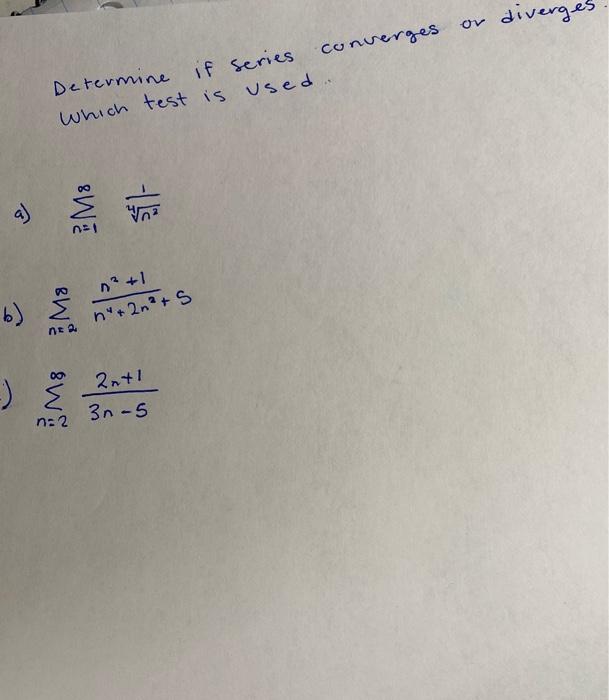 Determine if series converges or diverges.
Which test is used.
a) ∞ Σ n=1 1/∜n²
b) ∞ Σ n=2 (n²+1)/(n⁴+2n²+5)
) ∞ Σ n=2 (2n+1)/(3n-5)